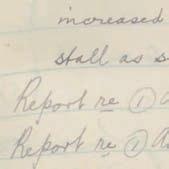 increased
stall as
Report re ①
Report re ①